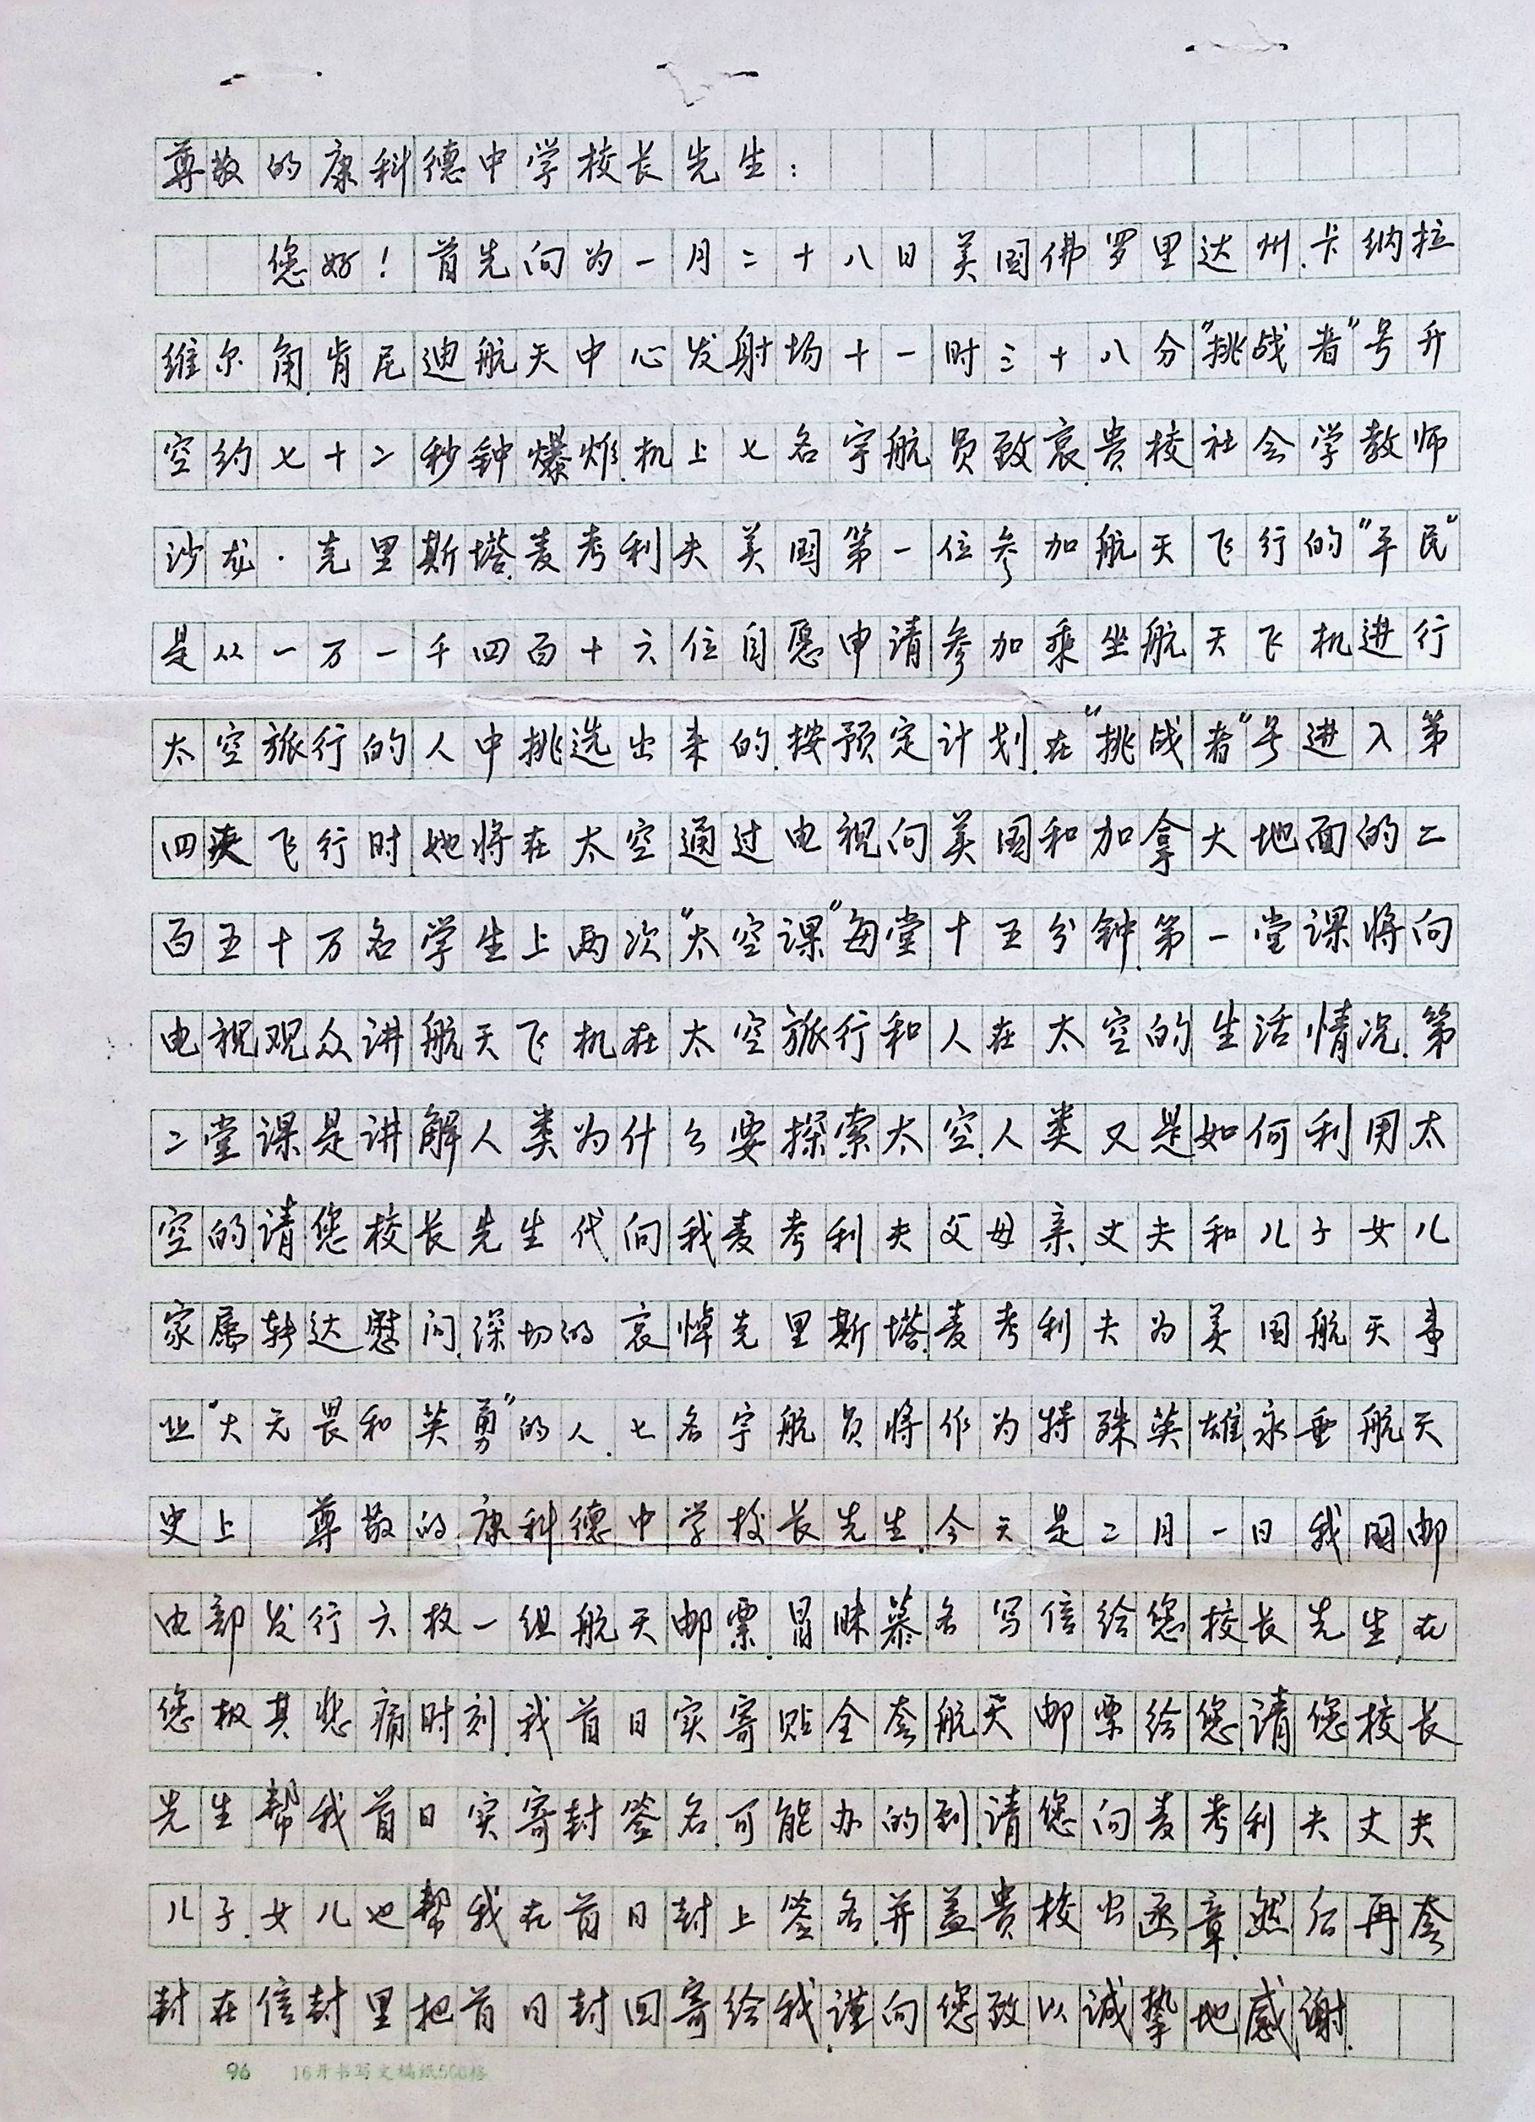 尊敬的康科德中学校长先生：
您好！首先向为一月二十八日美国佛罗里达州.卡纳拉
维尔角肯尼迪航天中心发射场十一时三十八分"挑战者"号升
空约七十二秒钟爆炸.机上七名宇航员致哀.贵校社会学教师
沙龙·克里斯塔.麦考利夫美国第一位参加航天飞行的"平民"
是从一万一千四百十六位自愿申请参加乘坐航天飞机进行
太空旅行的人中挑选出来的.按预定计划.在"挑战者"号进入第
四天飞行时.她将在太空通过电视向美国和加拿大地面的二
百五十万名学生上两次"太空课"每堂十五分钟.第一堂课将向
电视观众讲航天飞机在太空旅行和人在太空的生活情况.第
二堂课是讲解人类为什么要探索太空.人类又是如何利用太
空的.请您校长先生代向我麦考利夫父母亲.丈夫和儿子女儿
家属转达慰问.深切的哀悼克里斯塔.麦考利夫为美国航天事
业"大无畏和英勇"的人.七名宇航员将作为特殊英雄永垂航天
史上 尊敬的康科德中学校长先生.今天是二月一日我国邮
电部发行六枚一组航天邮票.冒昧慕名写信给您校长先生.在
您极其悲痛时刻.我首日实寄贴全套航天邮票给您.请您校长
先生帮我首日实寄封签名.可能办的到.请您向麦考利夫丈夫
儿子.女儿也帮我在首日封上签名.并盖贵校出函章.然后再套
封在信封里把首日封回寄给我.谨向您致以诚挚地感谢.
96 16开书写文稿纸500格